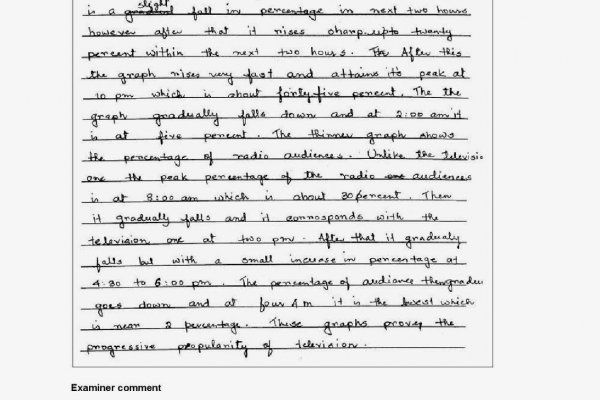 slight
is a gradual fall in percentage in next two hours
however after that it rises sharp upto twenty
percent within the next two hours. The After this
the graph rises very fast and attains it's peak at
10 pm which is about forty-five percent. The the
graph gradually falls down and at 2:00 am it
is at five percent. The thinner graph shows
the percentage of radio audiences. Unlike the televisio
one the peak percentage of the radio one audiences
is at 8:00 am which is about 30 percent. Then
it gradually falls and it corrosponds with the
television one at two pm. After that it gradualy
falls but with a small increase in percentage at
4:30 to 6:00 pm. The percentage of audiance then gradu
goes down and at four A m it is the lowest which
is near 2 percentage. These graphs proves the
progressive popularity of television.
Examiner comment